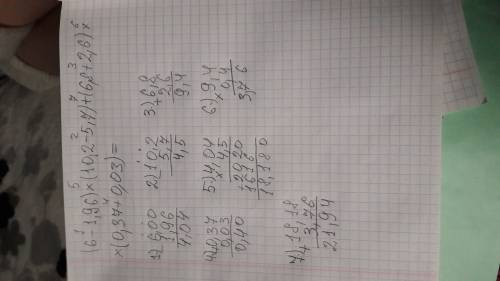 1 5 2 7 3 6
(6-1,96)×(10,2-5,7)+(6,8+2,6)×
4
×(0,37+0,03)=
1) 6,00
1,96
4,04
2) 10,2
5,7
4,5
3) 6,8
+2,6
9,4
4) 0,37
0,03
0,40
5) 4,04
× 4,5
+2020
1616
18,180
6) 9,4
× 0,4
3,76
7) 18,18
+ 3,76
21,94